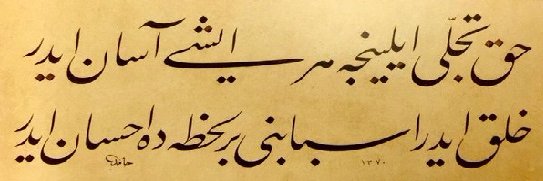 حق تجلّی ایلینجه هر ایشی آسان ایدر
خلق ایدر اسبابنی بر لحظه ده احسان ایدر
١٣٧٠